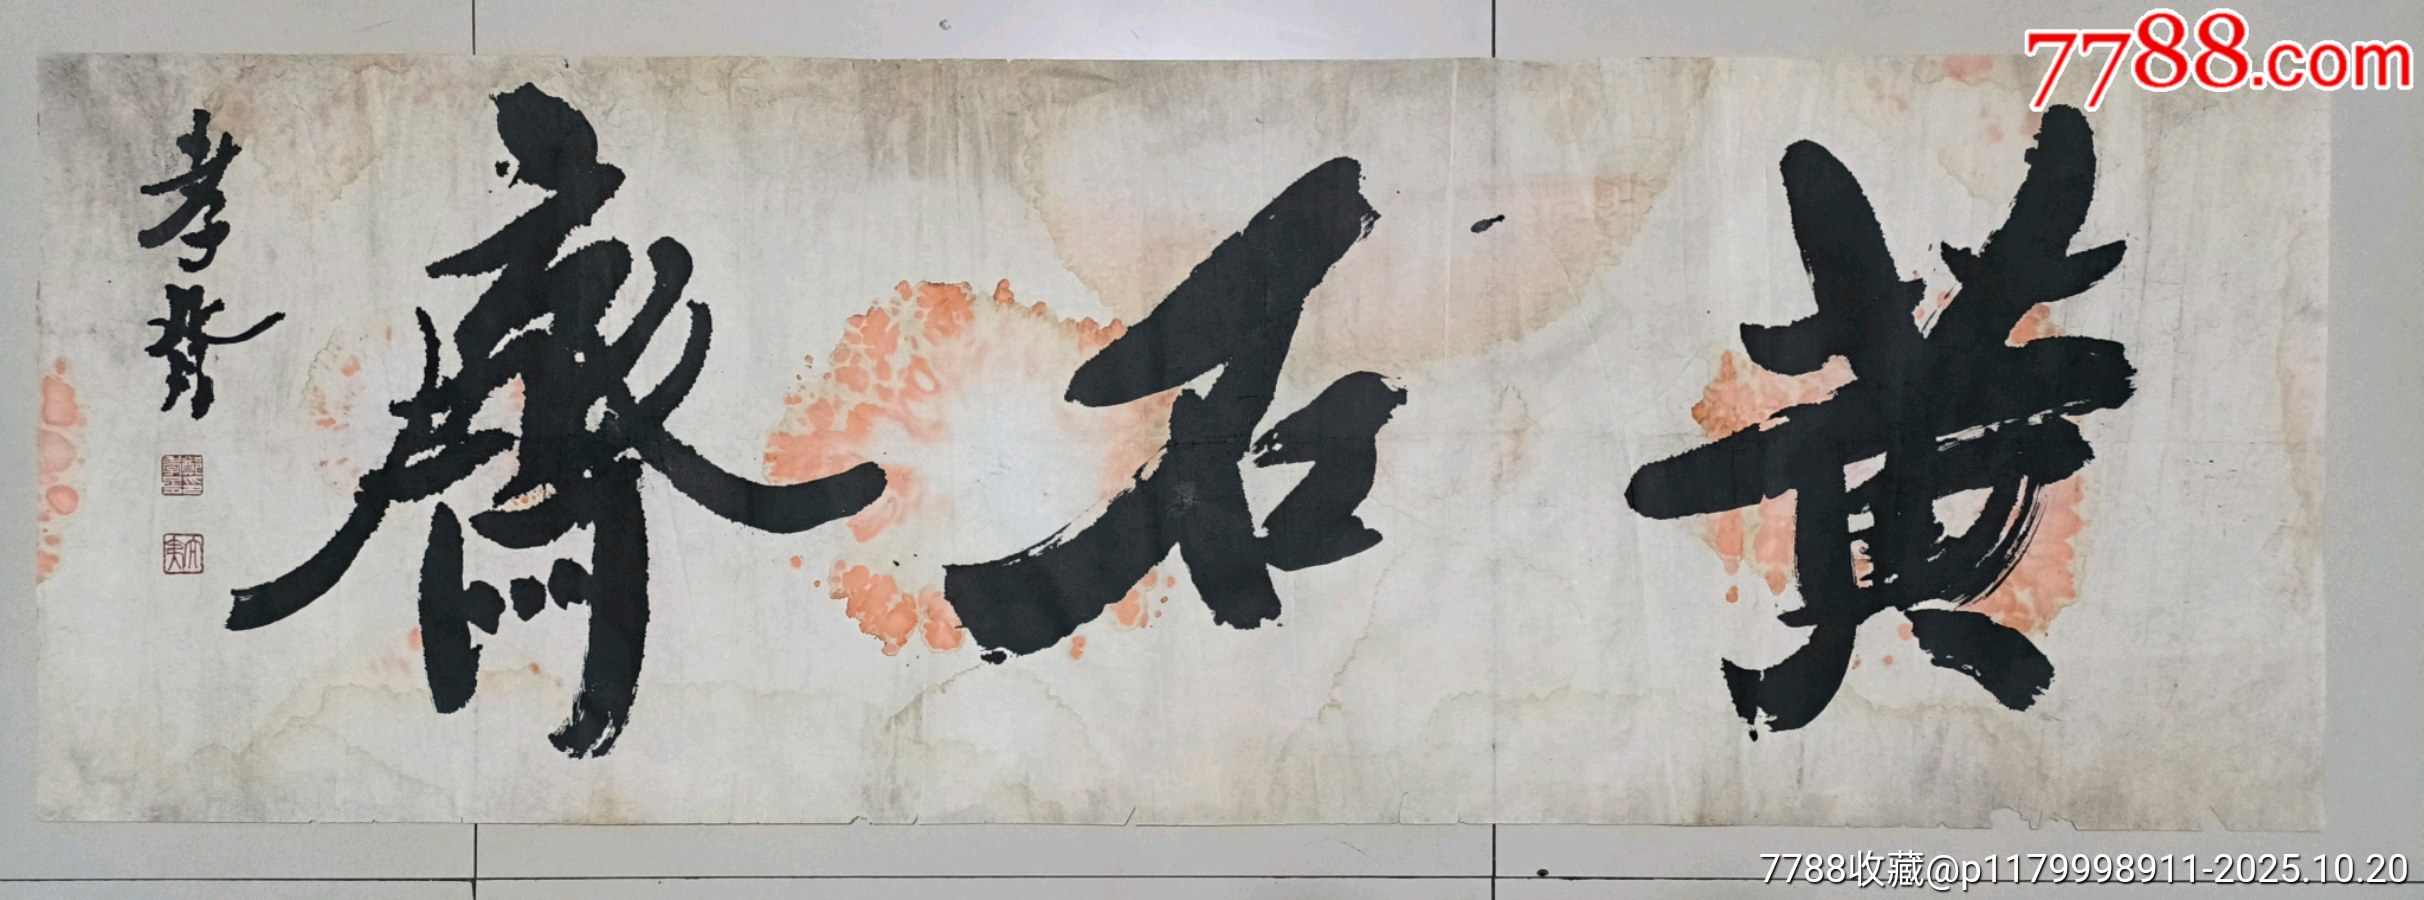 7788.com
黄石齋
孝胥
7788收藏@p1179998911-2025.10.20